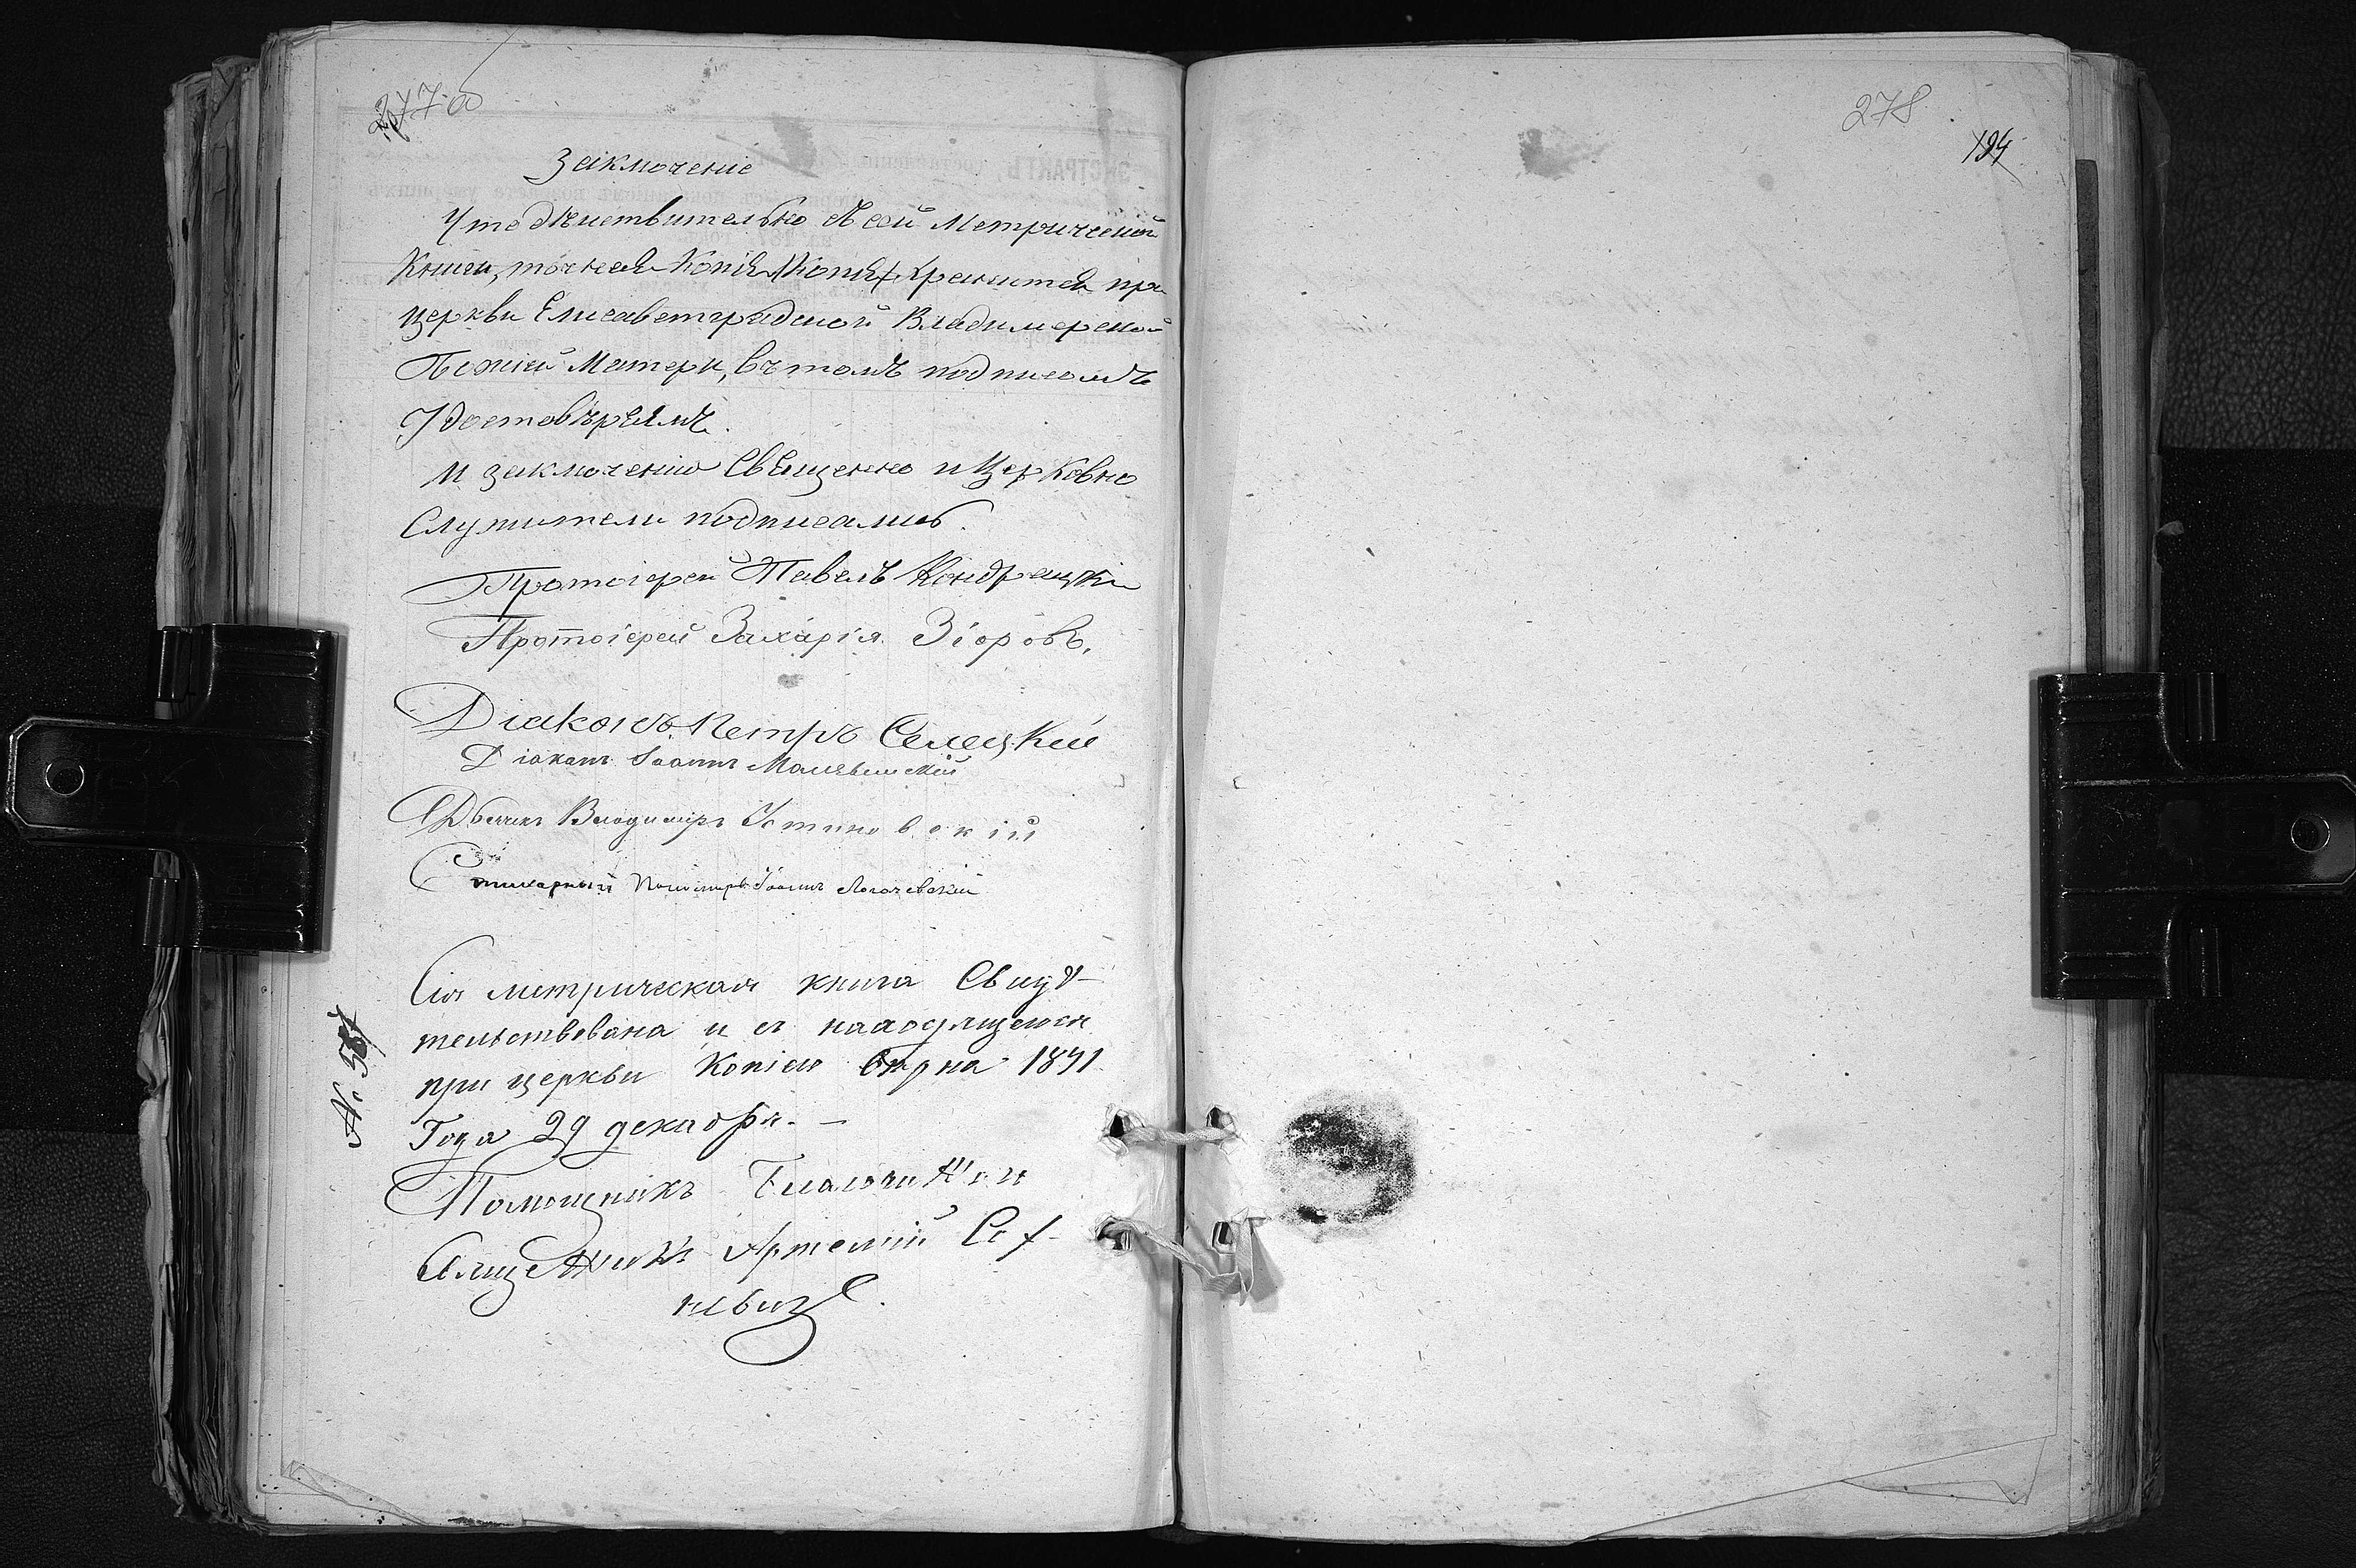 277 об
Заключеніе
Что дѣйствительно съ сей Метрической
Книги, точная Копія Копія хранится при
церкви Елисаветградской Владимерской
Божіей Матери, въ томъ подписомъ
Удостовѣряемъ.
И заключенію Священно и Церковно
Служители подписались.
Протоіерей Павелъ Кондрацкій
Протоіерей Захарія Зіоровъ.
Діаконъ Петръ Селецкій
Діаконъ Іоаннъ
Дьячекъ Владиміръ Устиновскій
Стихарный Пономарь Іоаннъ Логачевскій
Сія метрическая книга Свидѣ-
тельствована и съ находящеюся
при церкви Копіею вѣрна 1871
Года 29 декабря. —
№ 587
Помощникъ Благочиннаго
Священникъ Артемій
278
194